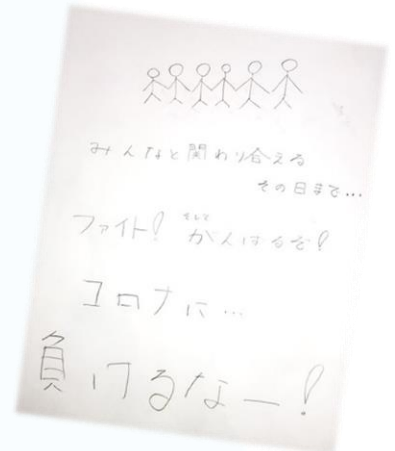 みんなと関わり合える
その日まで…
ファイト! そして がんばるぞ!
コロナに…
負けるなー!